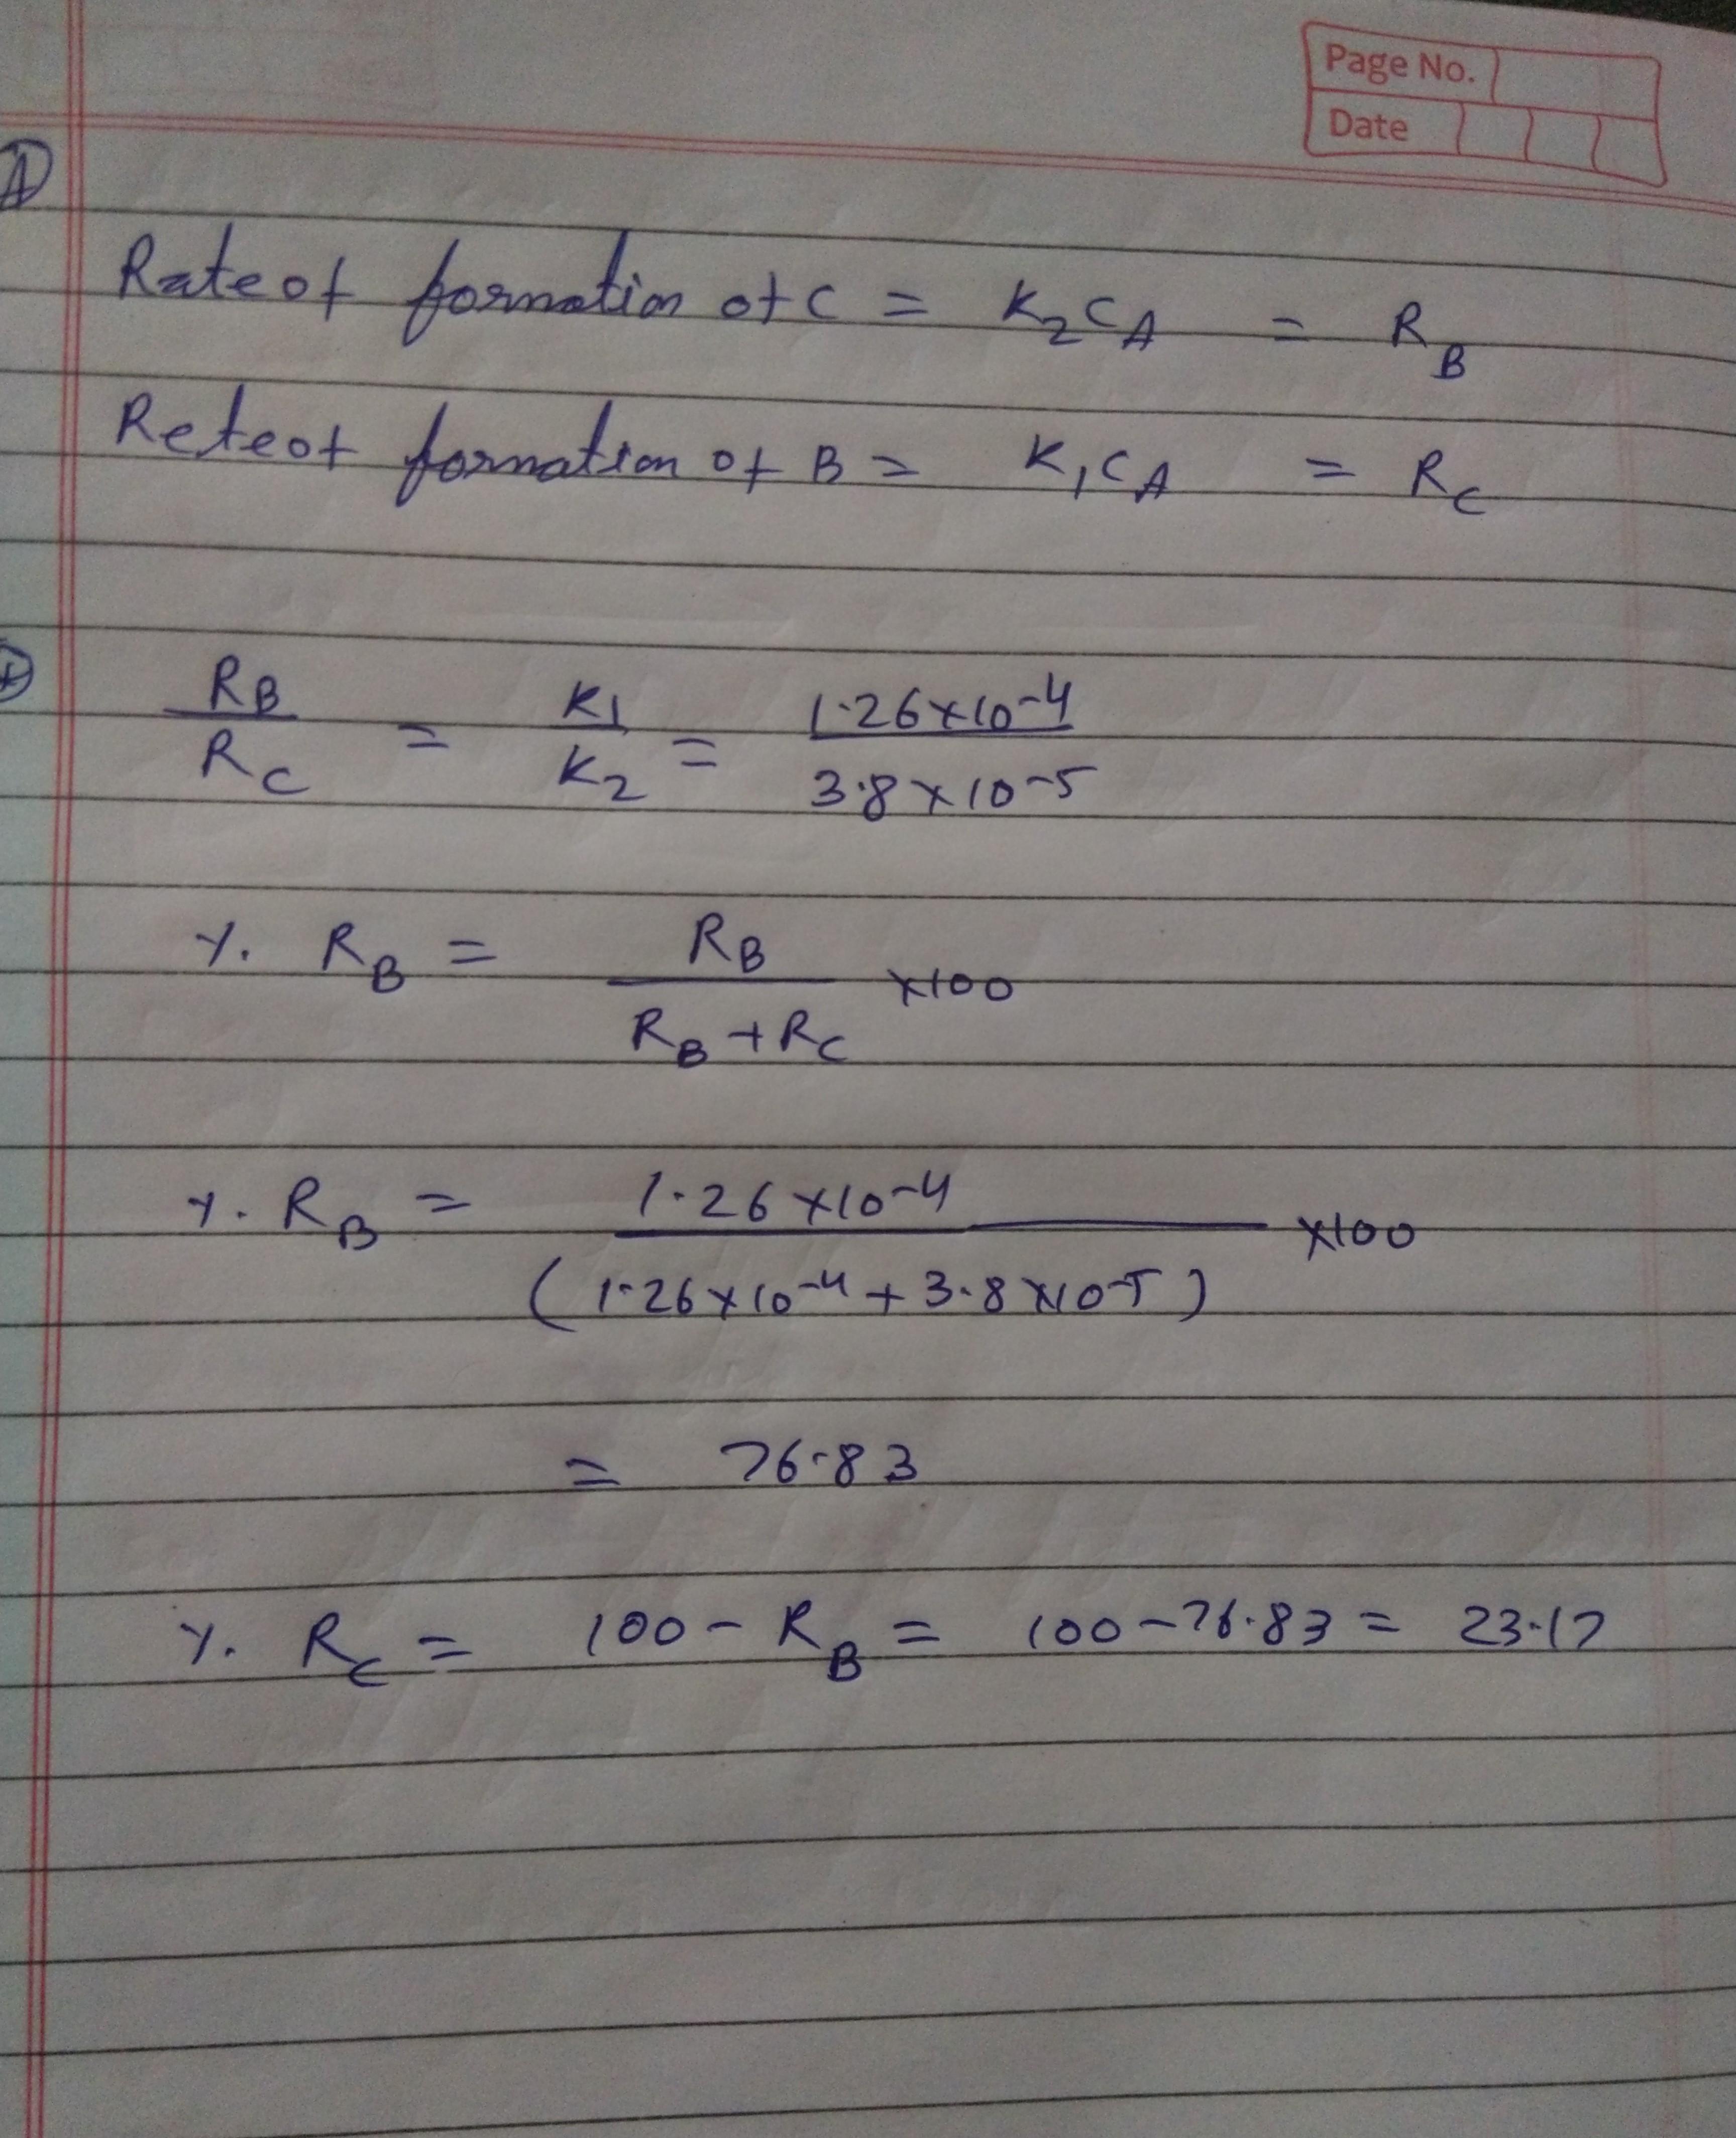 Page No.
Date
A
Rate of formation of C = K₂CA = RB
Rete of formation of B = K₁CA = RC
RB/RC = K1/K2 = 1.26×10-4/3.8×10-5
%. RB = RB/RB+RC ×100
%. RB = 1.26×10-4/(1.26×10-4+3.8×10-5) ×100
= 76.83
%. RC = 100-RB = 100-76.83 = 23.17